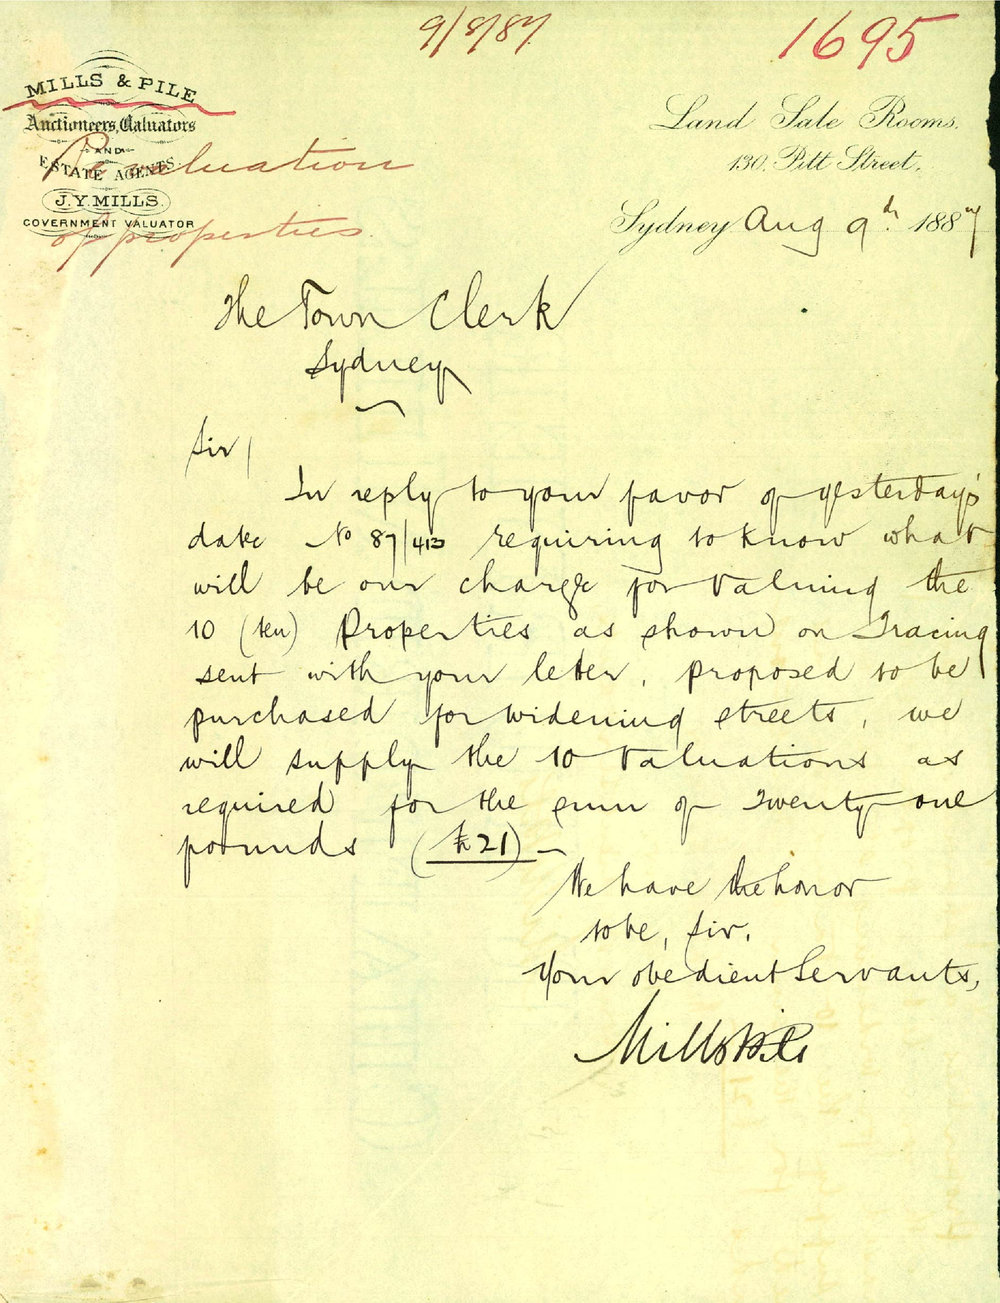 9/8/87
1695
MILLS & PILE
Auctioneers, Valuators
AND
ESTATE AGENTS
J. Y. MILLS.
GOVERNMENT VALUATOR
Re valuation
of properties
Land Sale Rooms,
130, Pitt Street,
Sydney Aug 9th 1887
The Town Clerk
Sydney
Sir/
In reply to your favor of yesterday's
date No 87/413 requiring to know what
will be our charge for valuing the
10 (ten) Properties as shown on Tracing
sent with your letter, proposed to be
purchased for widening streets, we
will supply the 10 valuations as
required for the sum of Twenty one
pounds (£21) —
We have the honor
to be, Sir,
Your obedient Servants,
Mills & Pile